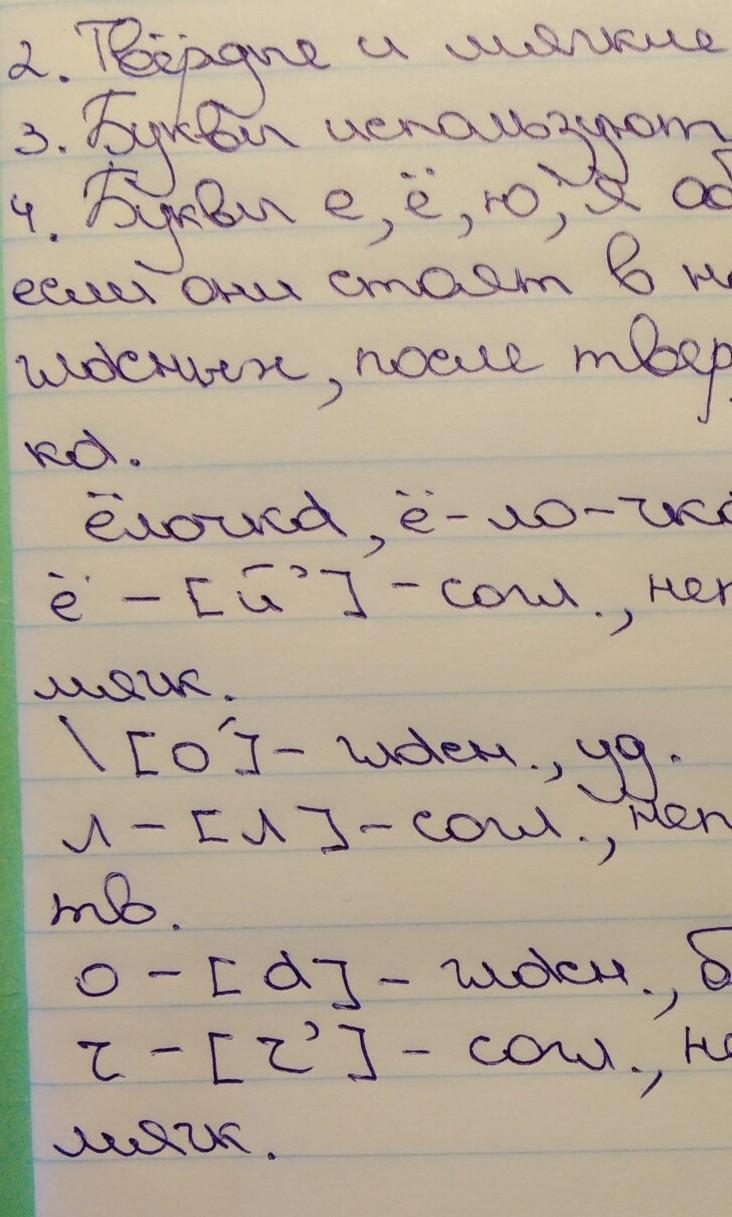 2. Твёрдые и мягкие
3. Буквы используют
4. Буквы е, ё, ю, я об
если они стоят в на
гласных, после твер
ка.
ёлочка, ё-ло-чка
ё - [й'] - согл., неп
мягк.
\ [о́] - гласн., уд.
л - [л] - согл., неп
тв.
о - [а] - гласн., б
ч - [ч'] - согл., не
мягк.